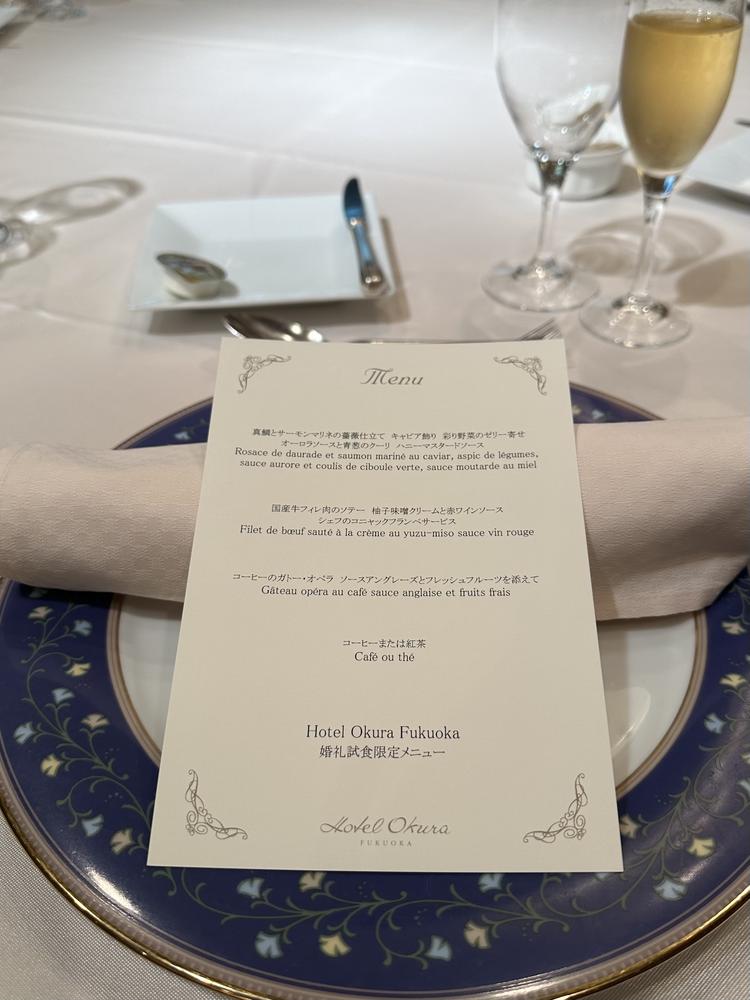 Menu
真鯛とサーモンマリネの薔薇仕立て キャビア飾り 彩り野菜のゼリー寄せ
オーロラソースと青葱のクーリ ハニーマスタードソース
Rosace de daurade et saumon mariné au caviar, aspic de légumes,
sauce aurore et coulis de ciboule verte, sauce moutarde au miel
国産牛フィレ肉のソテー 柚子味噌クリームと赤ワインソース
シェフのコニャックフランベサービス
Filet de bœuf sauté à la crème au yuzu-miso sauce vin rouge
コーヒーのガトー・オペラ ソースアングレーズとフレッシュフルーツを添えて
Gâteau opéra au café sauce anglaise et fruits frais
コーヒーまたは紅茶
Café ou thé
Hotel Okura Fukuoka
婚礼試食限定メニュー
Hotel Okura
FUKUOKA